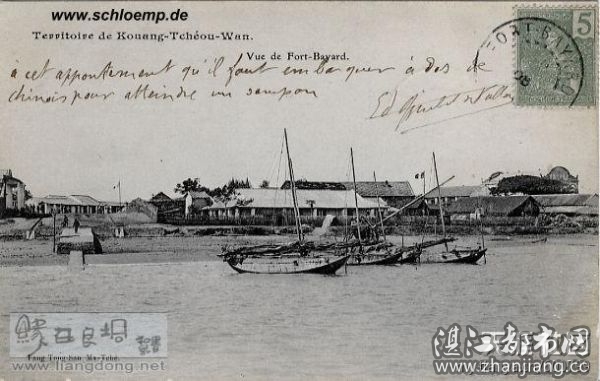 www.schloemp.de
Territoire de Kouang-Tchéou-Wan.
5
Vue de Fort-Bayard.
FORT-BAYARD
à cet appontement qu'il faut embarquer à dos de
chinois pour atteindre un sampan
Fang Tong-San, Ma-Tché.
www.liangdong.net
湛江都市网
www.zhanjiang.cc